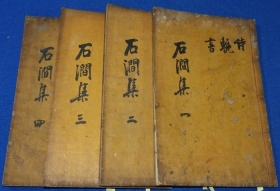 竹軆書
石澗集 一
石澗集 二
石澗集 三
石澗集 四